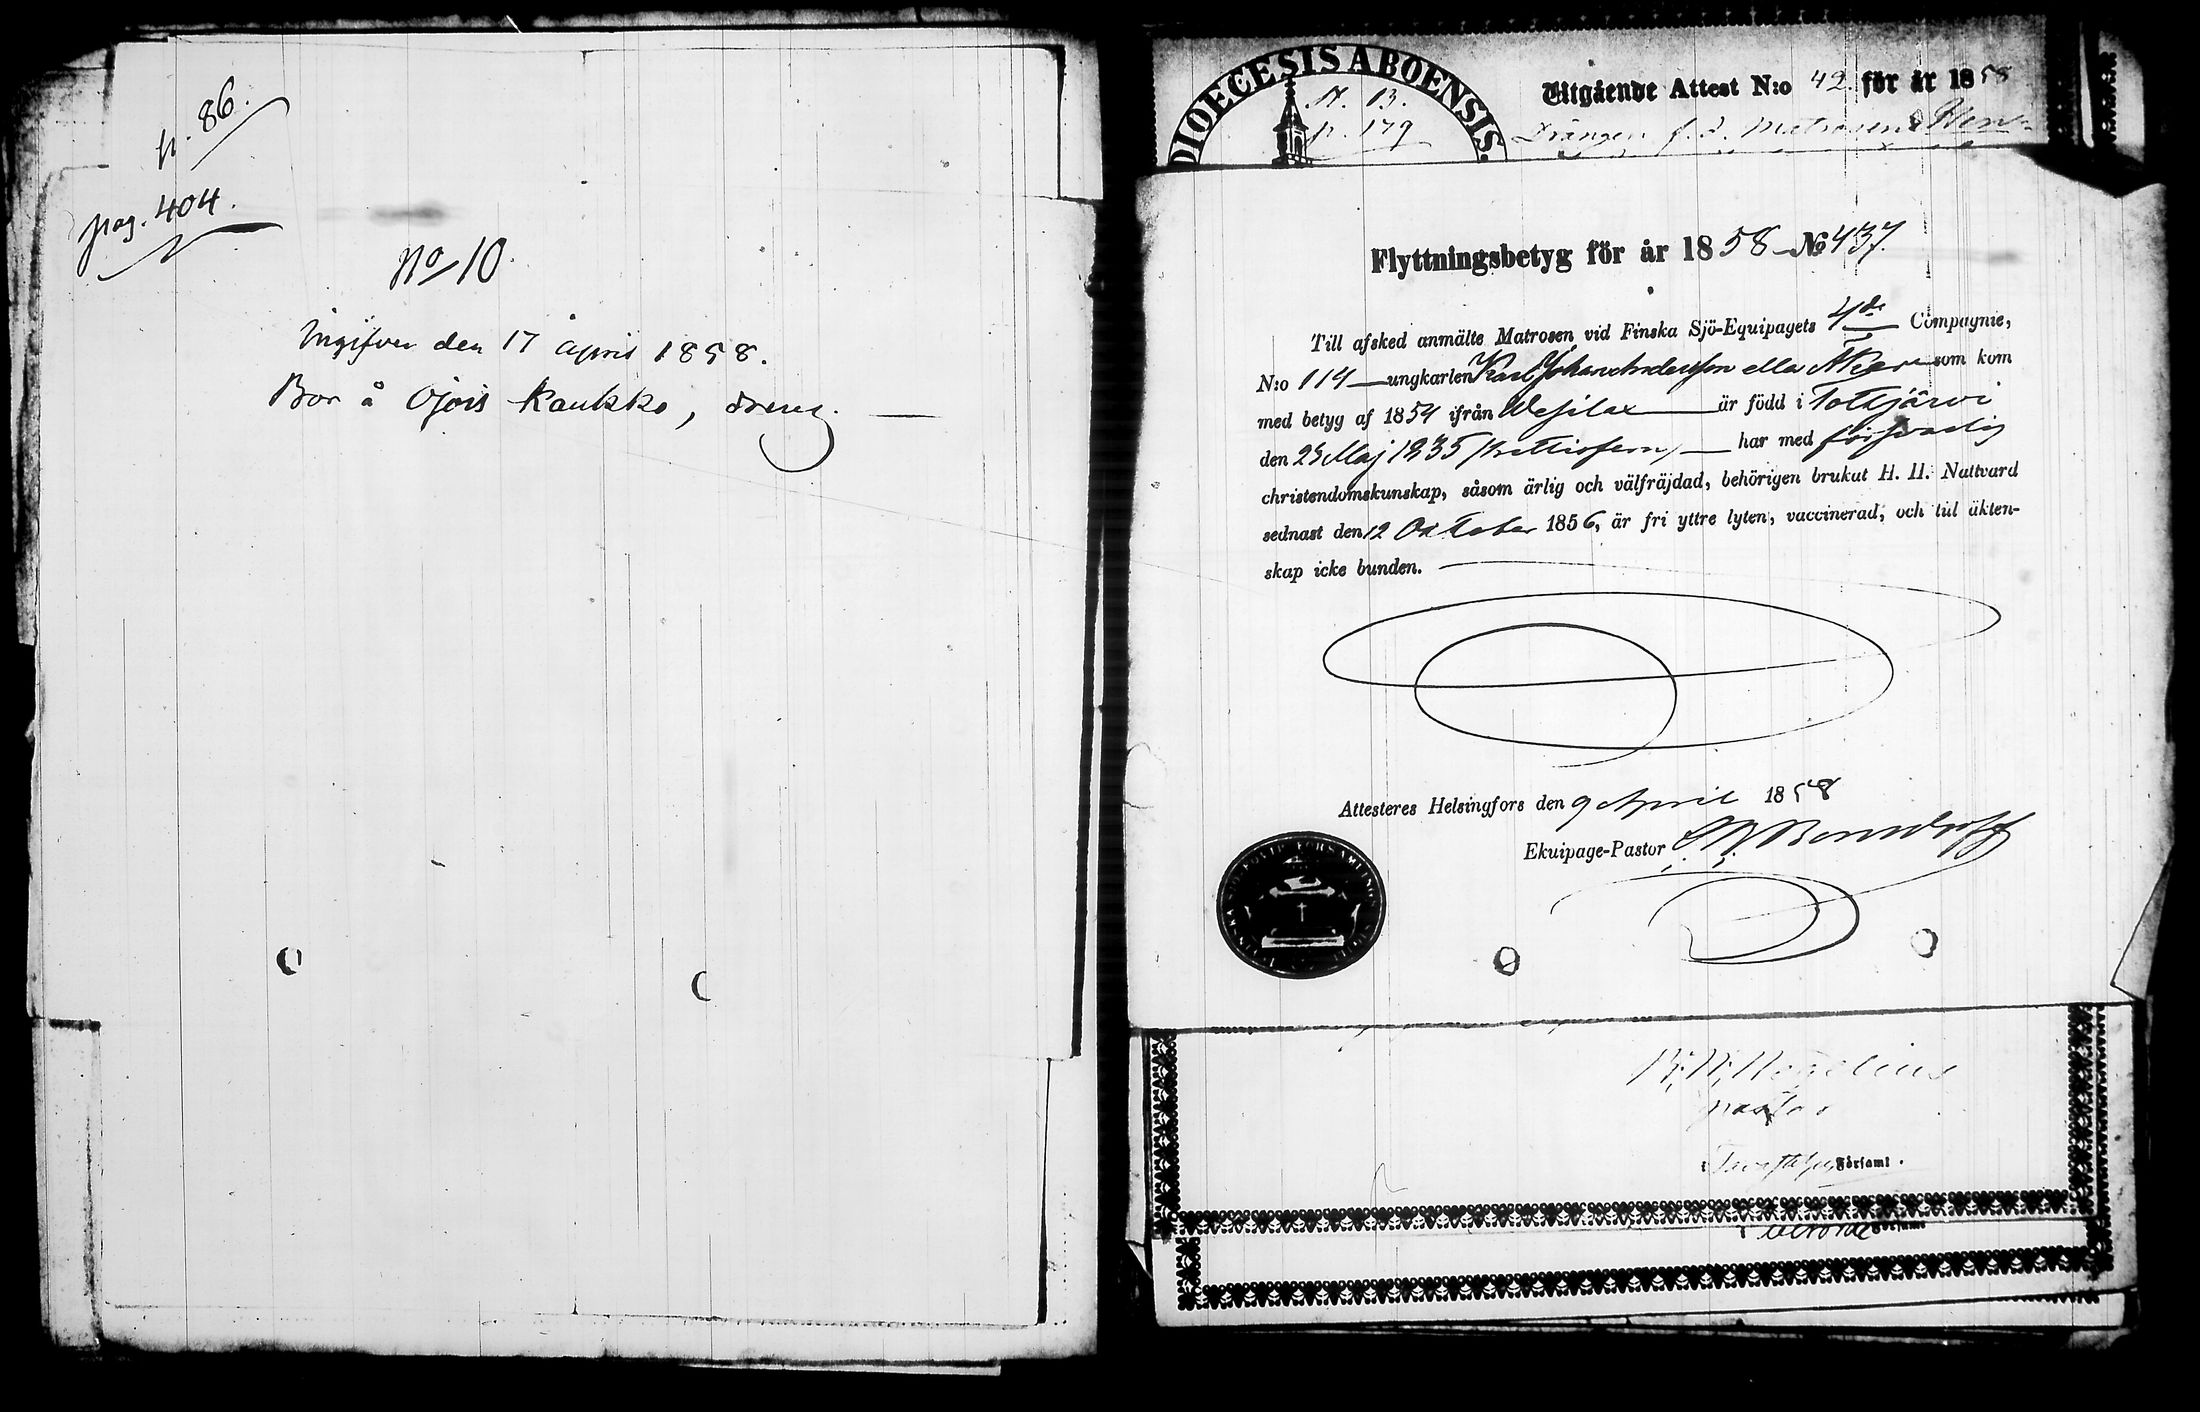 p. 86.
pag. 404.
No 10.
Ingifven den 17 April 1858.
Bor å Ojois Kaukko, dreng.
DIOECESIS ABOENSIS.
N. 13.
p. 179
Utgående Attest N:o 42. för år 1858
Drängen f. d. Matrosen
Flyttningsbetyg för år 1858 No 437.
Till afsked anmälte Matrosen vid Finska Sjö-Equipagets 4de Compagnie,
N:o 114 ungkarlen Karl Johan Andersson eller Åker som kom
med betyg af 1854 ifrån Wesilax är född i Tottijärvi
den 23 Maj 1835 har med försvarlig
christendomskunskap, såsom ärlig och välfräjdad, behörigen brukat H. H. Nattvard
sednast den 12 Oktober 1856, är fri yttre lyten, vaccinerad, och till äkten-
skap icke bunden.
Attesteres Helsingfors den 9 April 1858
Ekuipage-Pastor
pastor
Församl.
Församl